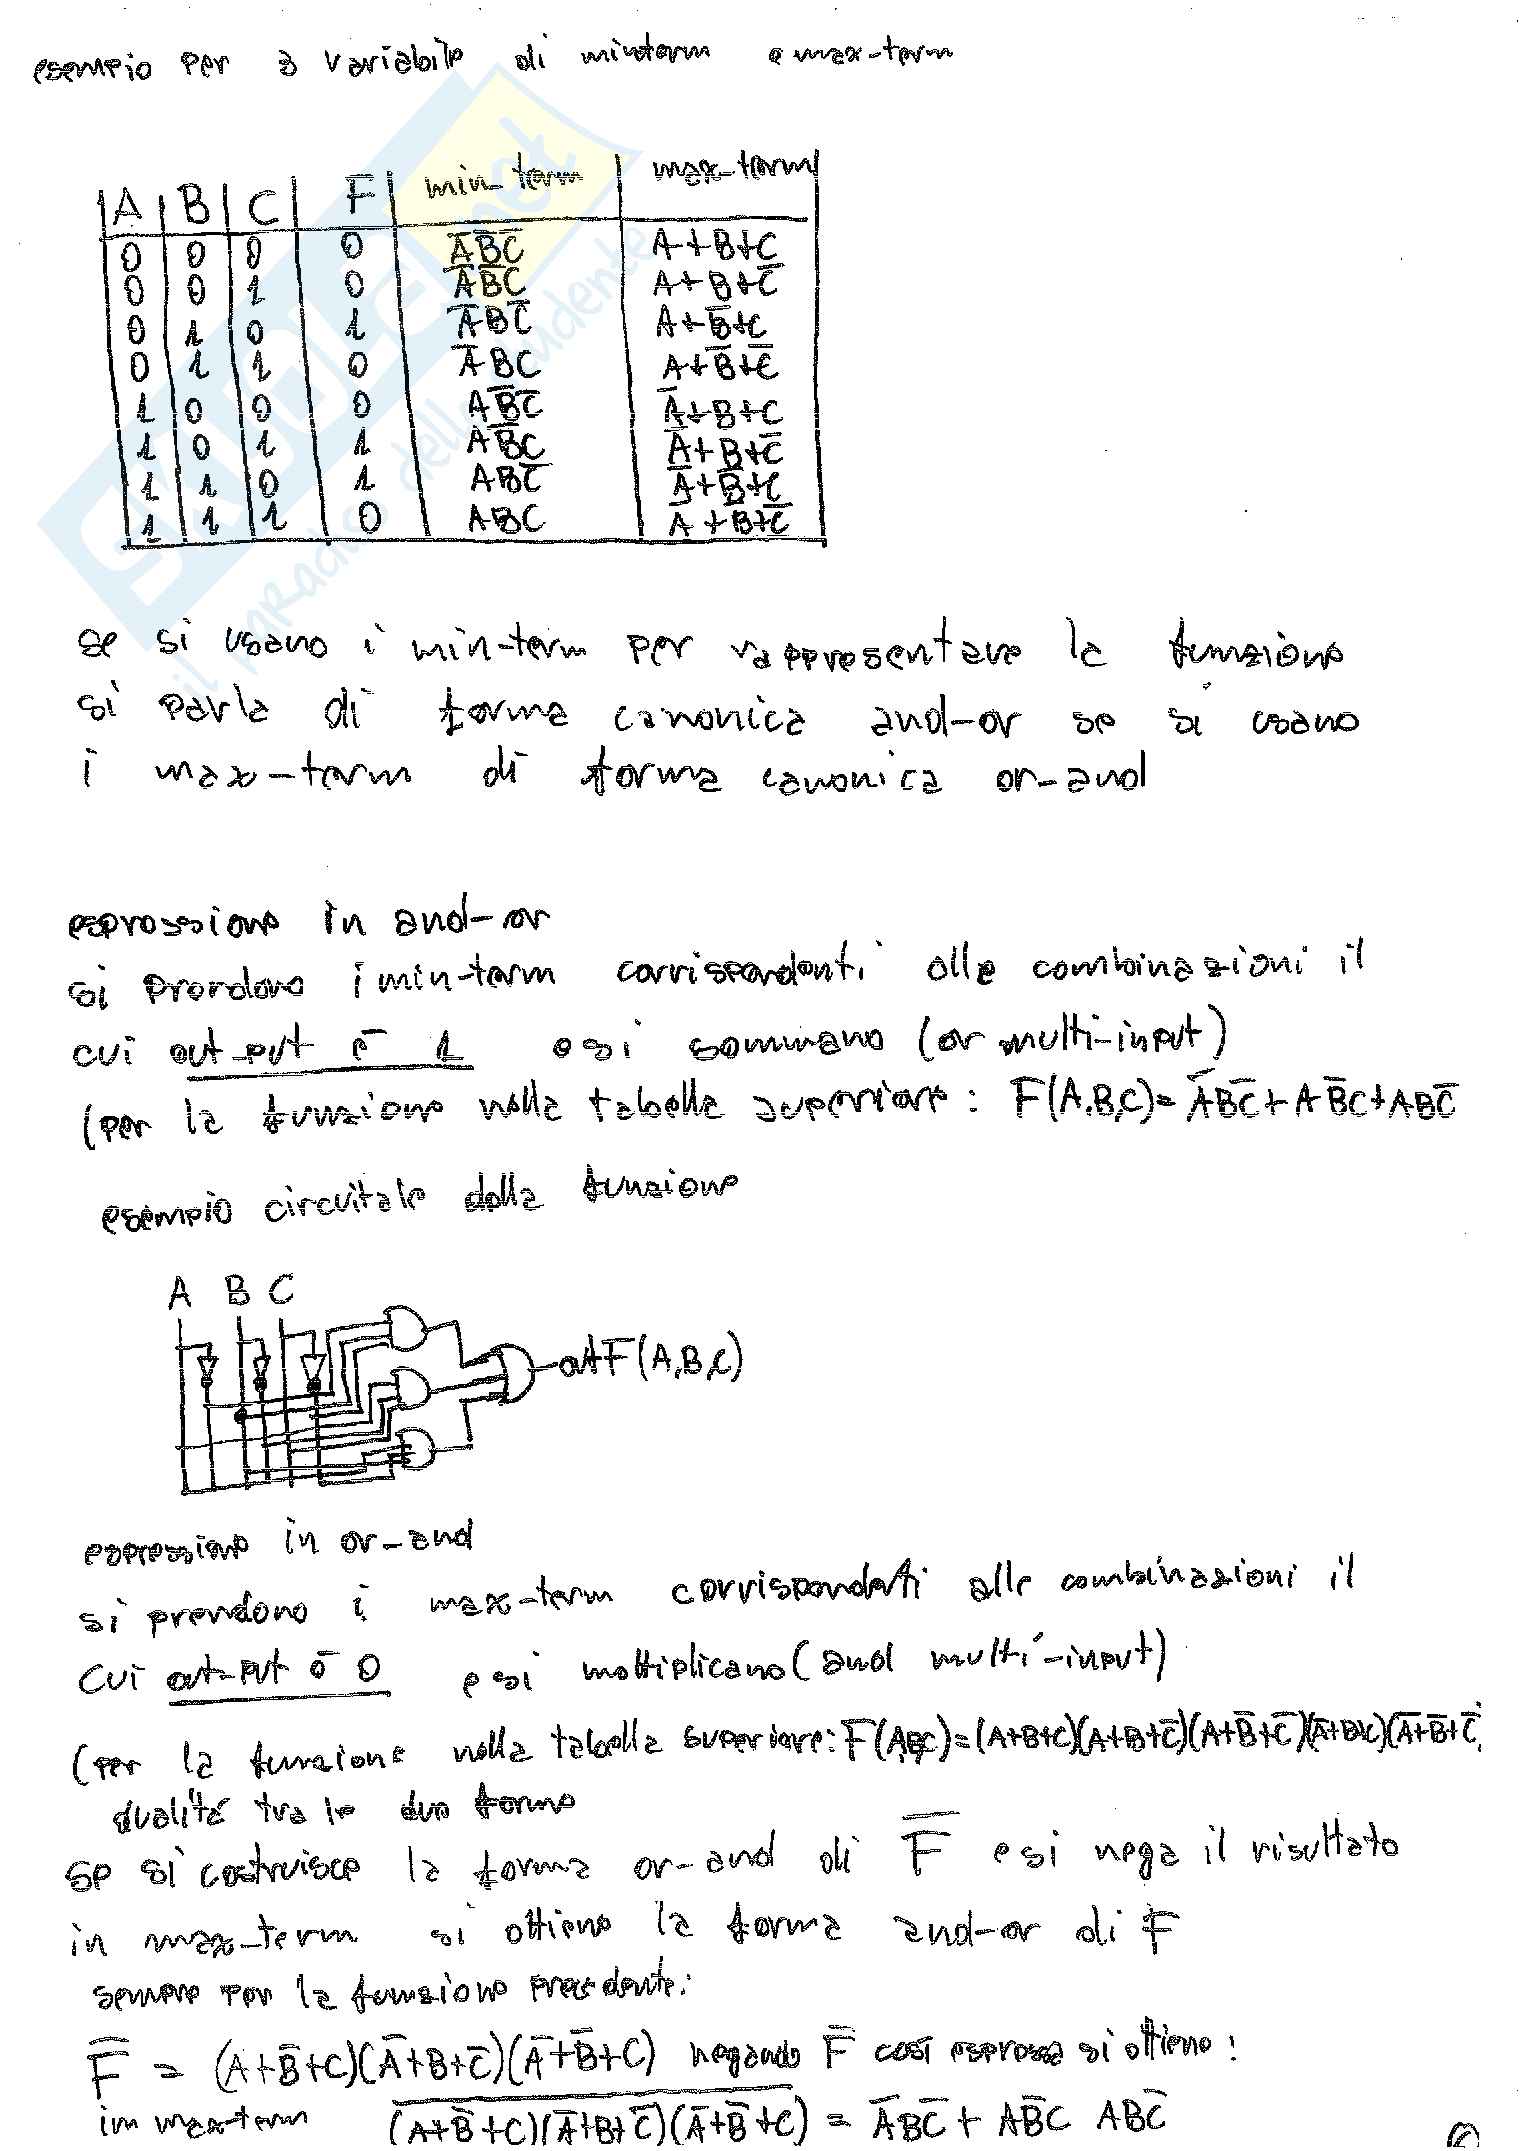 esempio per 3 variabile di minterm e max-term
A B C F min-term max-term
0 0 0 0 A̅B̅C̅ A+B+C
0 0 1 0 A̅B̅C A+B+C̅
0 1 0 1 A̅BC̅ A+B̅+C
0 1 1 0 A̅BC A+B̅+C̅
1 0 0 0 AB̅C̅ A̅+B+C
1 0 1 1 AB̅C A̅+B+C̅
1 1 0 1 ABC̅ A̅+B̅+C
1 1 1 0 ABC A̅+B̅+C̅
se si usano i min-term per rappresentare la funzione
si parla di forma canonica and-or se si usano
i max-term di forma canonica or-and
espressione in and-or
si prendono i min-term corrispondenti alle combinazioni il
cui out-put è 1 e si sommano (or multi-input)
(per la funzione nella tabella superiore: F(A,B,C)= A̅BC̅+AB̅C+ABC̅
esempio circuitale della funzione
A B C
out F(A,B,C)
espressione in or-and
si prendono i max-term corrispondenti alle combinazioni il
cui out-put è 0 e si moltiplicano (and multi-input)
(per la funzione nella tabella superiore: F(ABC)=(A+B+C)(A+B+C̅)(A+B̅+C̅)(A̅+B+C)(A̅+B̅+C̅)
dualità tra le due forme
se si costruisce la forma or-and di F̅ e si nega il risultato
in max-term si ottiene la forma and-or di F
sempre per la funzione precedente:
F̅ = (A+B̅+C)(A̅+B+C̅)(A̅+B̅+C) negando F̅ così espressa si ottiene:
in max-term (A+B̅+C)(A̅+B+C̅)(A̅+B̅+C) = A̅BC̅ + AB̅C ABC̅